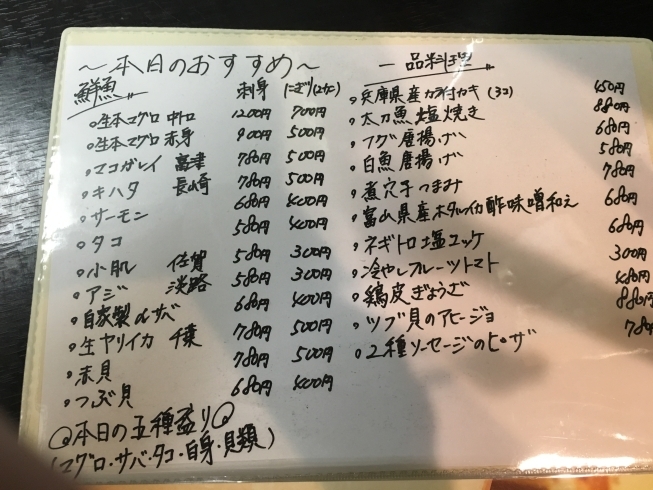 ～本日のおすすめ～
鮮魚 刺身 にぎり(2カン)
○生本マグロ 中トロ 1200円 700円
○生本マグロ 赤身 900円 500円
○マコガレイ 高津 780円 500円
○キハダ 長崎 780円 500円
○サーモン 680円 400円
○タコ 580円 400円
○小肌 佐賀 580円 300円
○アジ 淡路 580円 300円
○自家製〆サバ 680円 400円
○生ヤリイカ 千葉 780円 500円
○赤貝 780円 500円
○つぶ貝 680円 400円
◎本日の五種盛り◎
(マグロ・サバ・タコ・白身・貝類)
一品料理
○兵庫県産カラ付カキ(3コ) 450円
○太刀魚塩焼き 880円
○フグ唐揚げ 680円
○白魚唐揚げ 580円
○煮穴子つまみ 780円
○富山県産ホタルイカ酢味噌和え 680円
○ネギトロ塩ユッケ 680円
○冷やしフルーツトマト 300円
○鶏皮ぎょうざ 480円
○ツブ貝のアヒージョ 880円
○2種ソーセージのピザ 780